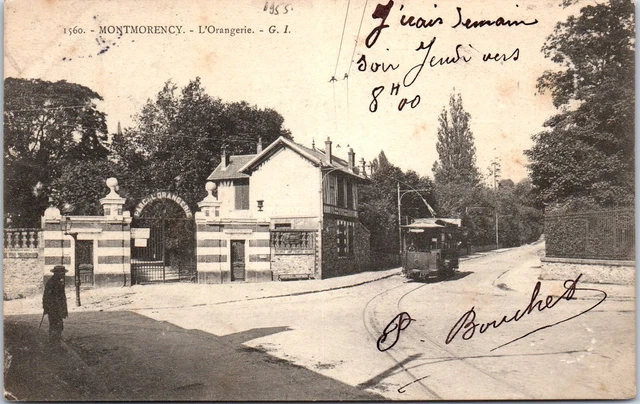 8955
1560. - MONTMORENCY. - L'Orangerie. - G. I.
J'irais demain
soir Jeudi vers
8H00
P Bouchet